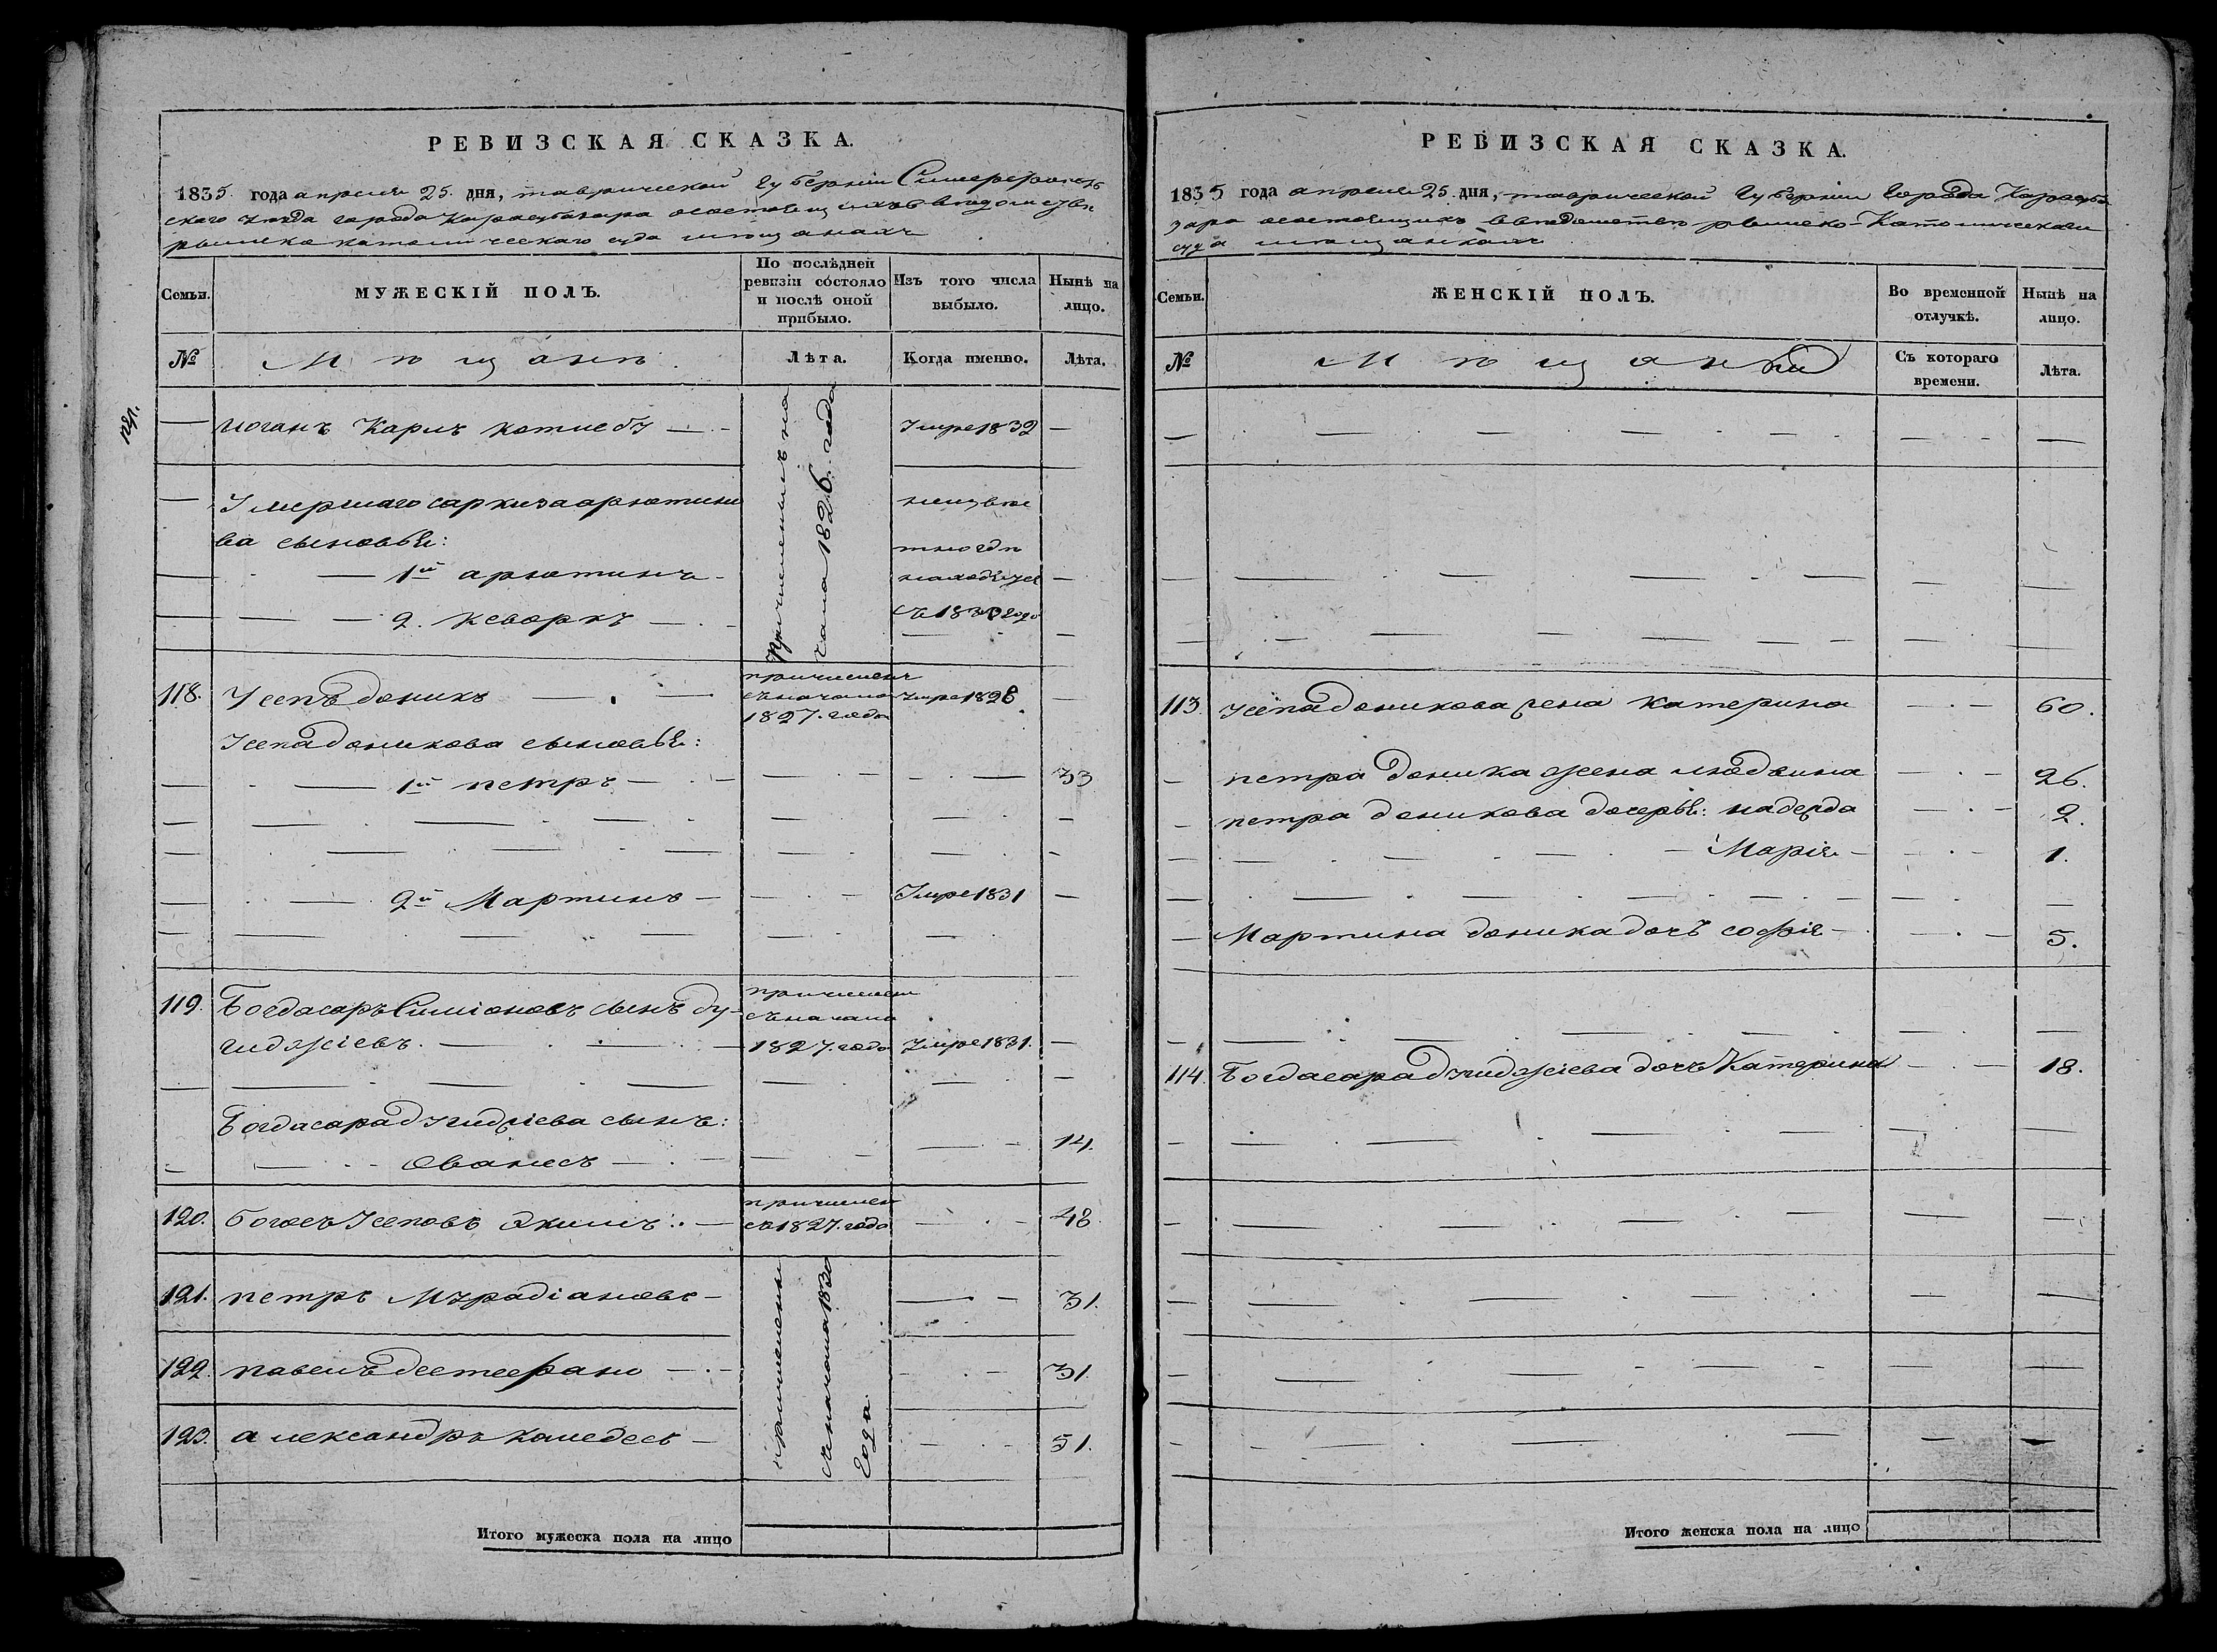 РЕВИЗСКАЯ СКАЗКА.
1835 года апреля 25. дня, таврической Губернии Симферополь
скаго уезда города Карасубазара состоящихъ въ ведомстве
римско католическаго суда мещанахъ
Семьи.
МУЖЕСКІЙ ПОЛЪ.
По послѣдней
ревизіи состояло
и послѣ оной
прибыло.
Изъ того числа
выбыло.
Нынѣ на
лицо.
№
Мѣщанъ
Лѣта.
Когда именно.
Лѣта.
Иоганъ Карлъ
Умре 1832
—
Причисленныхъ
1826. года
Умершаго саркиза арютино
ва сыновья:
1й арютинъ
2. кеворкъ
неизве
тно где
находятся
съ 183 года
118. Усепъ доникъ
причисленъ
съ начала
1827. года
Умре 1828
—
Усепа доникова сыновья:
1й петръ
33
2й Мартинъ
Умре 1831
—
119. Богдасаръ Симіоновъ сынъ ду
гиджіевъ.
причислен
съ начала
1827. года
Умре 1831.
—
Богдасара дугиджіева сынъ:
Ованесъ
14.
120. богосъ Усеповъ Экимъ
причислен
съ 1827. года
48.
121. петръ Мурадіановъ
31.
причислены
съ начала 1830
года.
122. павелъ
31.
123. александръ
51.
Итого мужеска пола на лицо
РЕВИЗСКАЯ СКАЗКА.
1835 года апреля 25. дня, таврической Губернии Города Карасуба
зара состоящихъ въ ведомстве римско-Католическаго
суда мещанкахъ
Семьи.
ЖЕНСКІЙ ПОЛЪ.
Во временной
отлучкѣ.
Нынѣ на
лицо.
№
Мѣщанки
Съ котораго
времени.
Лѣта.
113. Усепа доникова жена Катерина
60.
петра доника жена
26.
петра доникова дочерья: надежда
2.
Марія
1.
Мартина доника дочъ софія
5.
114. Богдасара дугиджіева дочъ Катерина
18.
Итого женска пола на лицо